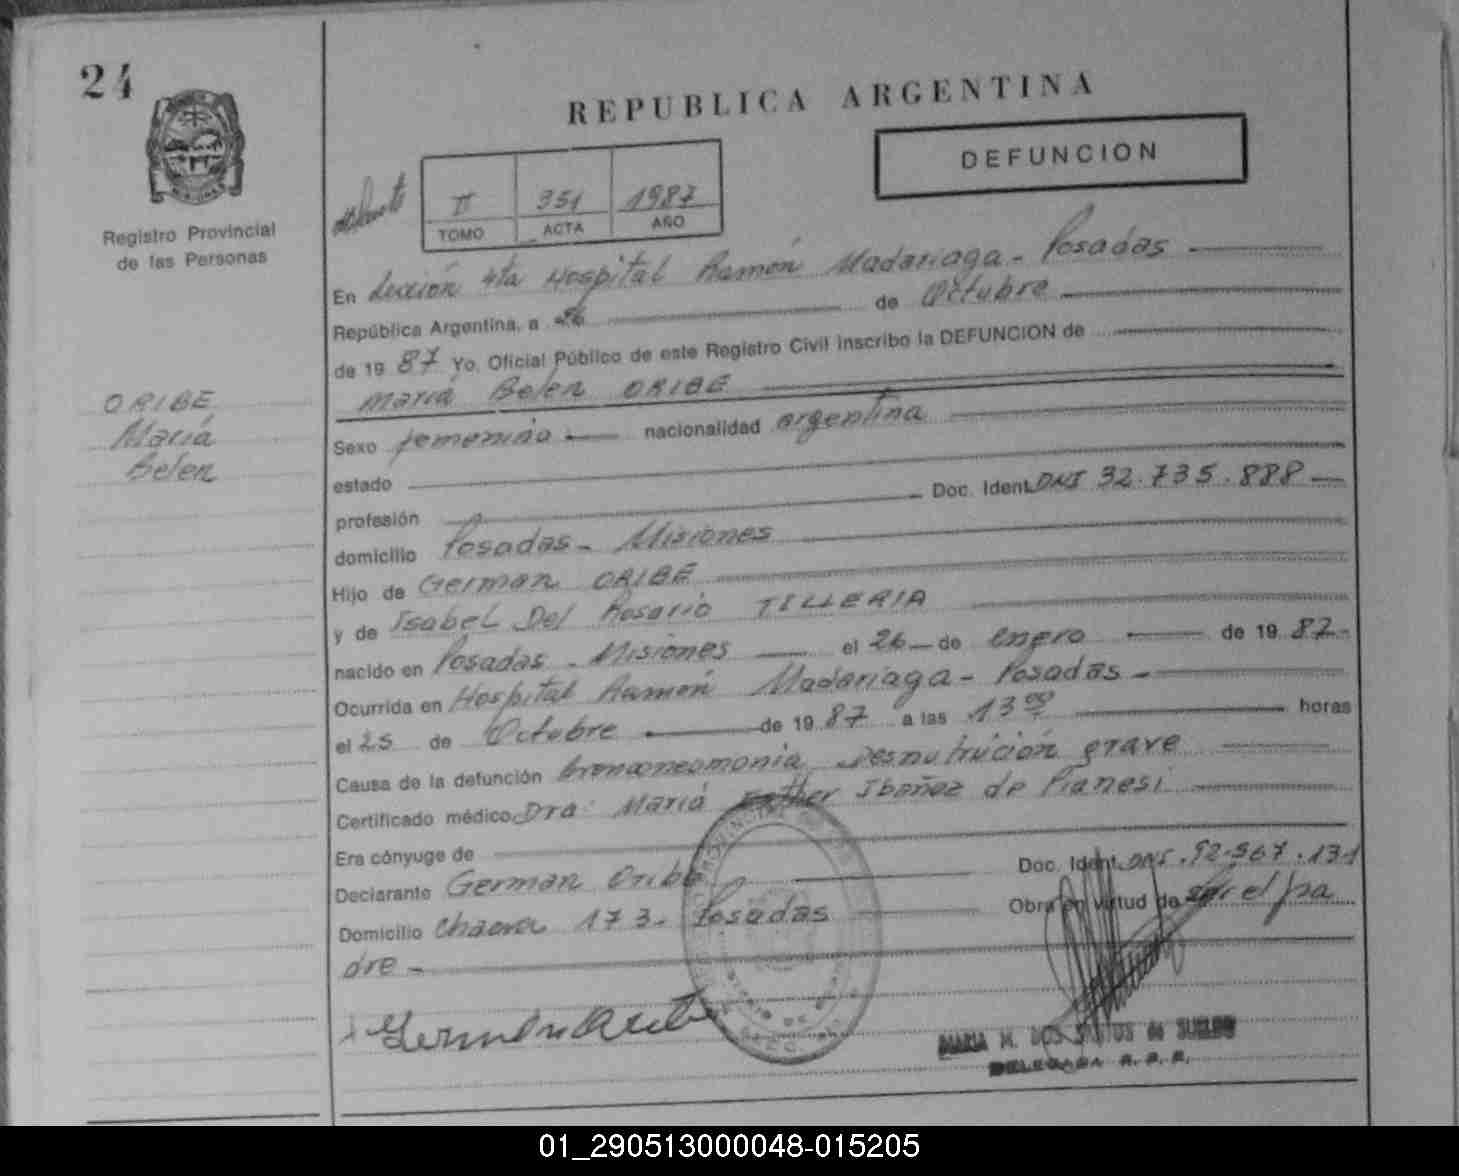 24
REPUBLICA ARGENTINA
DEFUNCION
Registro Provincial
de las Personas
II 351 1987
TOMO ACTA AÑO
En Sección 4ta Hospital Ramón Madariaga - Posadas
República Argentina, a 26 de Octubre
de 19 87 Yo, Oficial Público de este Registro Civil inscribo la DEFUNCION de
María Belen ORIBE
ORIBE
María
Belen
Sexo femenino nacionalidad argentina
estado
profesión Doc. Ident. DNI 32.735.888
domicilio Posadas - Misiones
Hijo de German ORIBE
y de Isabel Del Rosario TILLERIA
nacido en Posadas - Misiones el 26 de enero de 19 87
Ocurrida en Hospital Ramón Madariaga - Posadas
el 25 de Octubre de 19 87 a las 13 00 horas
Causa de la defunción Desnutrición grave
Certificado médico Dra. María Esther Ibañez de Pianesi
Era cónyuge de
Declarante German Oribe Doc. Ident. DNI. 92.567.131
Domicilio 173 - Posadas Obra en virtud de Ser el pa
dre
MARIA M. DOS SANTOS de SUELDO
DELEGADA R.P.P.
01_290513000048-015205